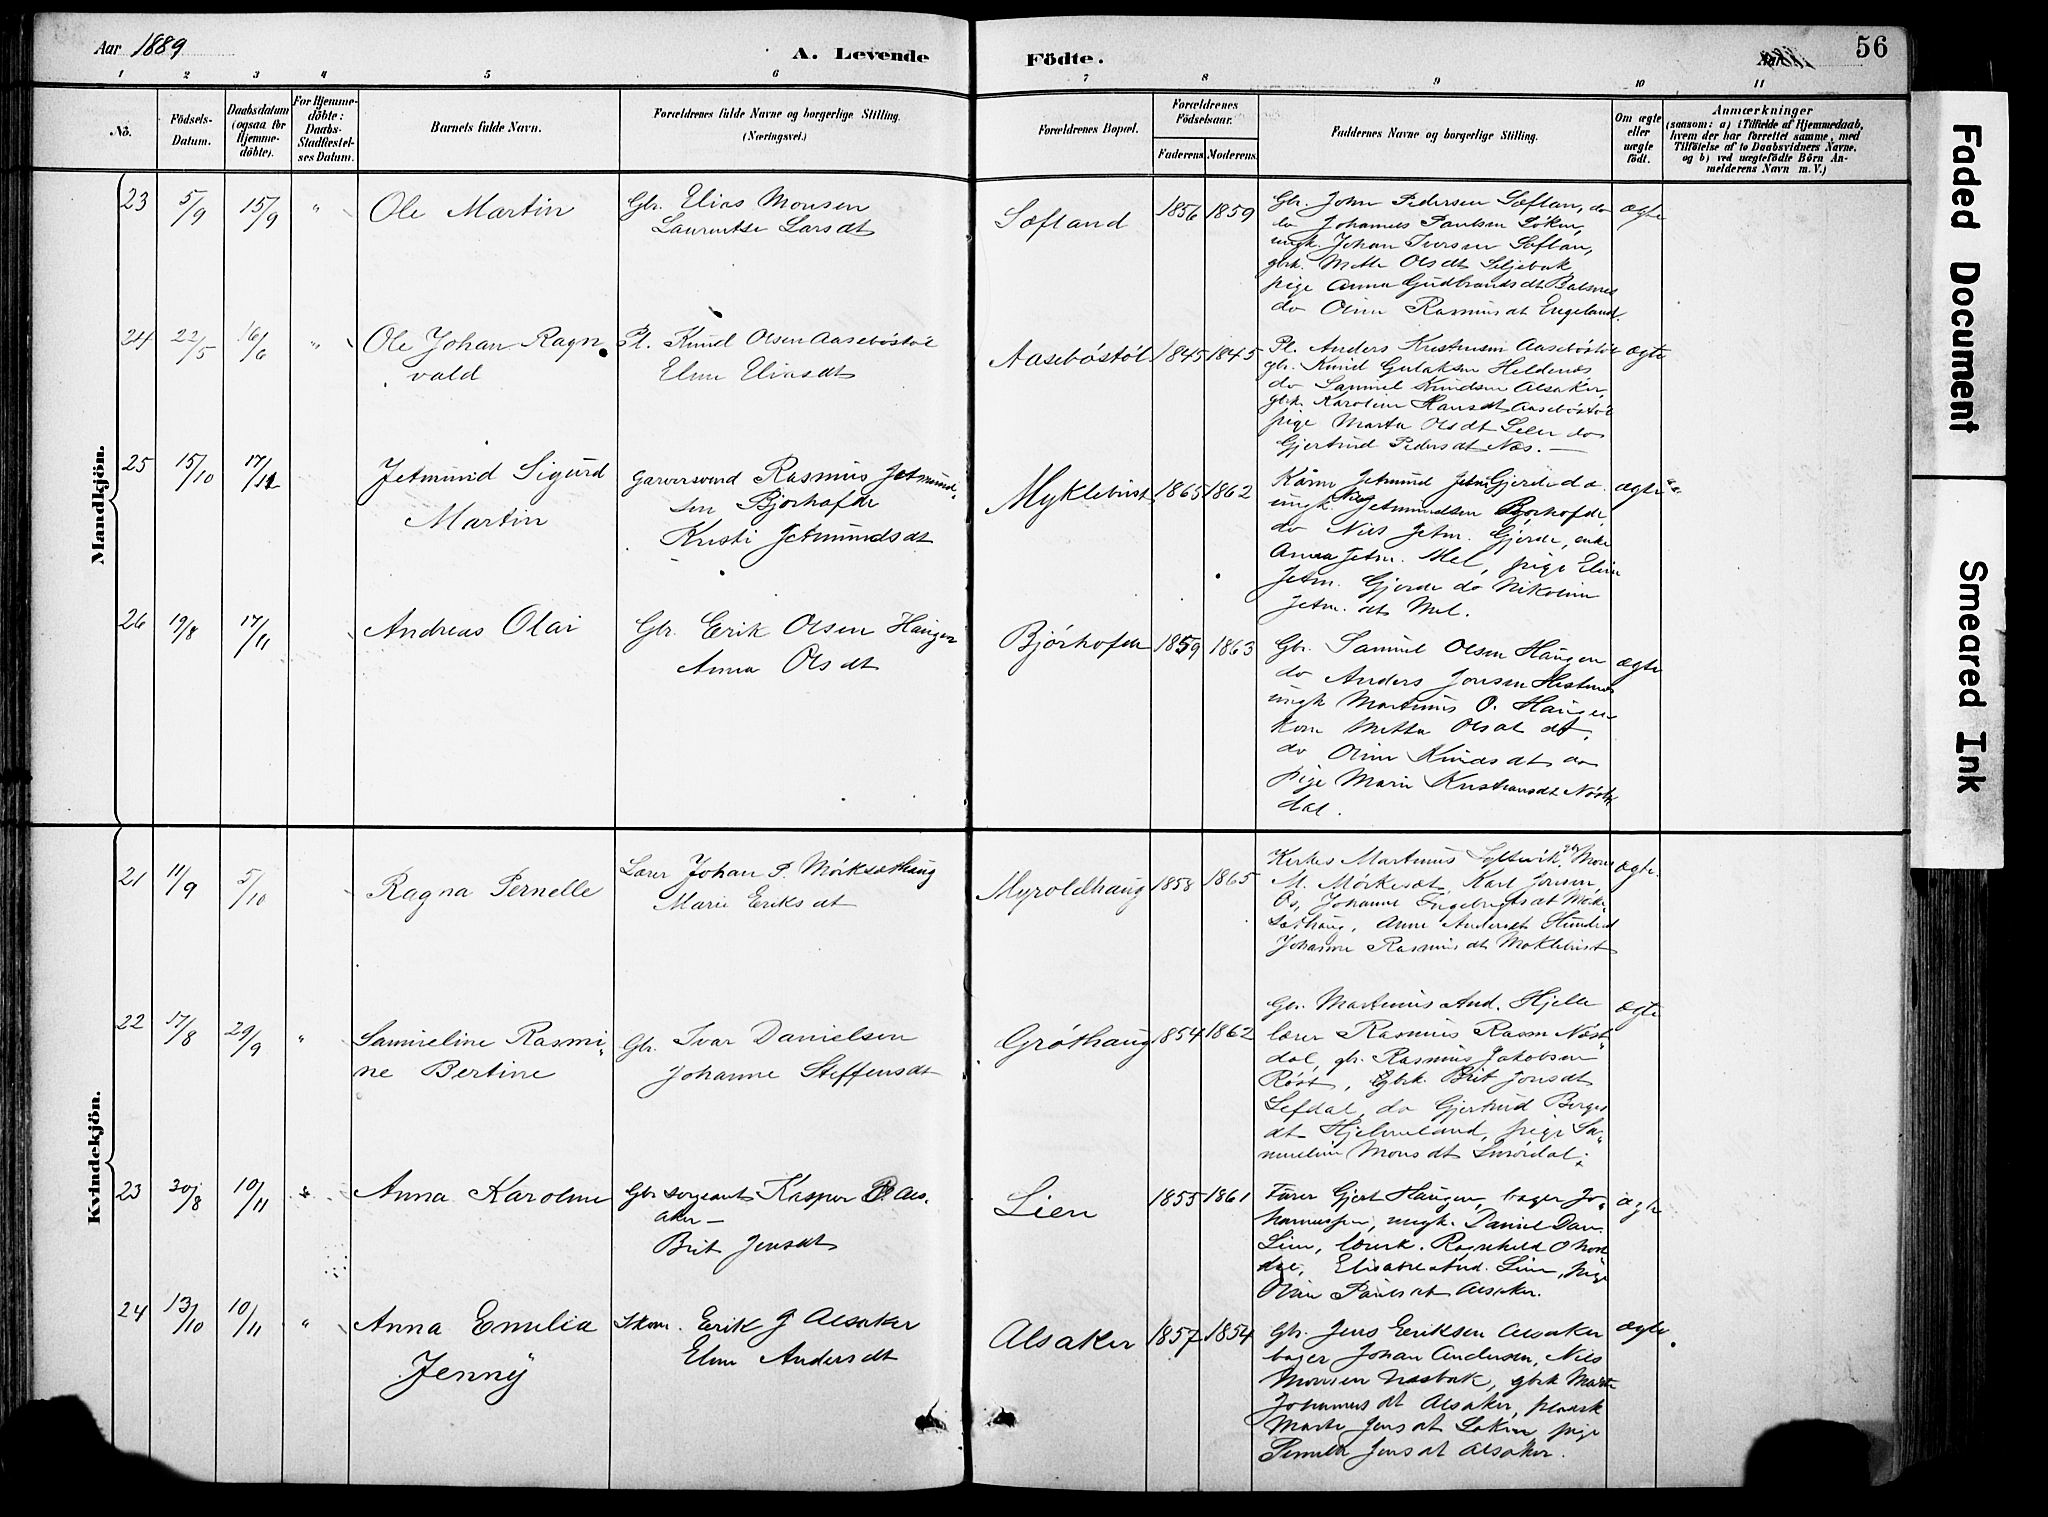 Aar 1889
A. Levende Födte.
56
1 2 3 4 5 6 7 8 9 10 11
No.
Födsels-Datum.
Daabsdatum (ogsaa for Hjemme-döbte).
For Hjemme-döbte: Daabs-Stadfæstel-ses Datum.
Barnets fulde Navn.
Forældrenes fulde Navne og borgerlige Stilling.
(Næringsvei.)
Forældrenes Bopæl.
Forældrenes Födselsaar.
Faderens. Moderens.
Faddernes Navne og borgerlige Stilling.
Om ægte eller uægte födt.
Anmærkninger
(saasom: a) i Tilfælde af Hjemmedaab, hvem der har forrettet samme, med Tilföielse af to Daabsvidners Navne. og b) ved uægtefödte Börn Anmelderens Navn m. V.)
Mandkjön.
23 5/9 15/9 " Ole Martin
Gbr. Elias Monsen
Laurentse Larsdt
Sæfland 1856 1859
Gbr. John Pedersen Sæflan, do
do Johannes Paulsen Løken,
ungk. Johan Iversen Sæflan,
gbrk. Mette Olsdt Seljebak
pige Anna Gudbrandsdt Balsnes
do Oline Rasmusdt Engeland.
ægte
24 22/5 16/6 " Ole Johan Ragn
vald
Pl. Knud Olsen Aasebøstøl
Eline Eliasdt
Aasebøstøl 1845 1845
Pl. Anders Kristensen Aasebøstøl
gbr. Knud Gulaksen Heldenes
do Samuel Knudsen Alsaker,
gbrk. Karoline Hansdt Aasebøstøl
pige Marta Olsdt Seler do
Gjertrud Pedersdt Næs. —
ægte
25 15/10 17/11 Jetmund Sigurd
Martin
Garversvend Rasmus Jetmund-
sen Bjørhofde
Kristi Jetmundsdt
Myklebust 1865 1862
Jetmund Jetm Gjerde do.
ungk. Jetmundsen Bjørhofde,
do Nils Jetm. Gjerde, enke
Anna Jetm. Mel, pige Eline
Jetm. Gjerde do Nikoline
Jetm. dt Mel.
ægte
26 19/8 17/11 Andreas Olai
Gbr. Erik Olsen Haugen
Anna Olsdt
Bjørhofde 1859 1863
Gbr. Samuel Olsen Haugen
do Anders Jonsen Hestenes
ungk Martinus O. Haugen
Kone Mette Olsdt do,
do Oline Knudsdt do
pige Marie Kristiansdt Nøst
dal.
ægte
Kvindekjön.
21 11/9 5/10 Ragna Pernelle
Lærer Johan P. Mørksethaug
Marie Eriksdt
Myroldhaug 1858 1865
Kirkes Martinus Softevik, Mons
M. Mørkesdt, Karl Jonsen
Os, Johanne Ingebrigtsdt Mørk
sethaug, Anne Andersdt Hundeid
Johanne Rasmusdt Moklebust
ægte.
22 17/8 29/9 " Samueline Rasmi-
ne Bertine
Gbr. Ivar Danielsen
Johanne Steffensdt
Grøthaug 1854 1862
Gbr. Martinus And. Hjelle
lærer Rasmus Rasm Nøst-
dal, gbr. Rasmus Jakobsen
Røst, Gbrk. Brit Jonsdt
Sefdal, do Gjertrud Børges
dt Hjelmeland, pige Sa-
mueline Monsdt Smørdal.
ægte
23 30/8 10/11 " Anna Karoline
Gbr sergeant Kasper P. Als-
aker —
Brit Jensdt
Lien 1855 1861
Furer Gjert Haugen, bager Jo-
hannessen, ungk. Daniel Dan.
Lien, lærerk. Ragnhild O Nord
dal, Elisabet And. Lien, pige
Oline Paulsdt Alsaker.
ægte
24 13/10 10/11 " Anna Emilia
Jenny
Skom. Erik J Alsaker
Eline Andersdt
Alsaker 1857 1854
Gbr. Jens Eriksen Alsaker
bager Johan Andersen, Nils
Monsen Næsbak, gbrk Marte
Johannesdt Alsaker,
Marte Jensdt Løken pige
Pernille Jensdt Alsaker.
ægte.
Faded Document
Smeared Ink